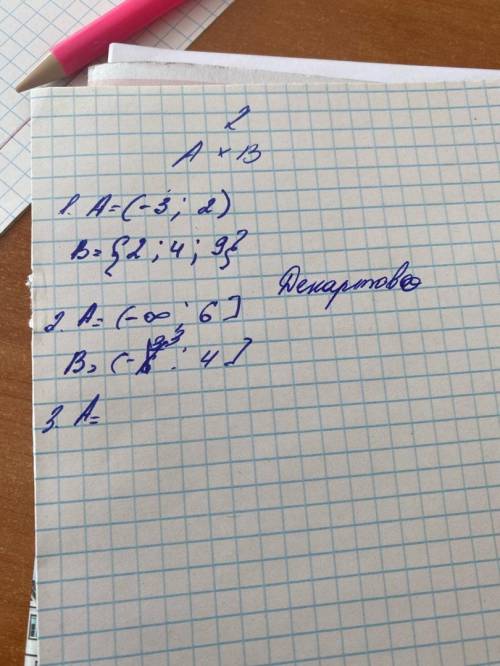 2
A × B
1. A = (-3; 2)
B = {2; 4; 9}
Декартово
2. A = (-∞; 6]
B = (- ; 4]
3. A =